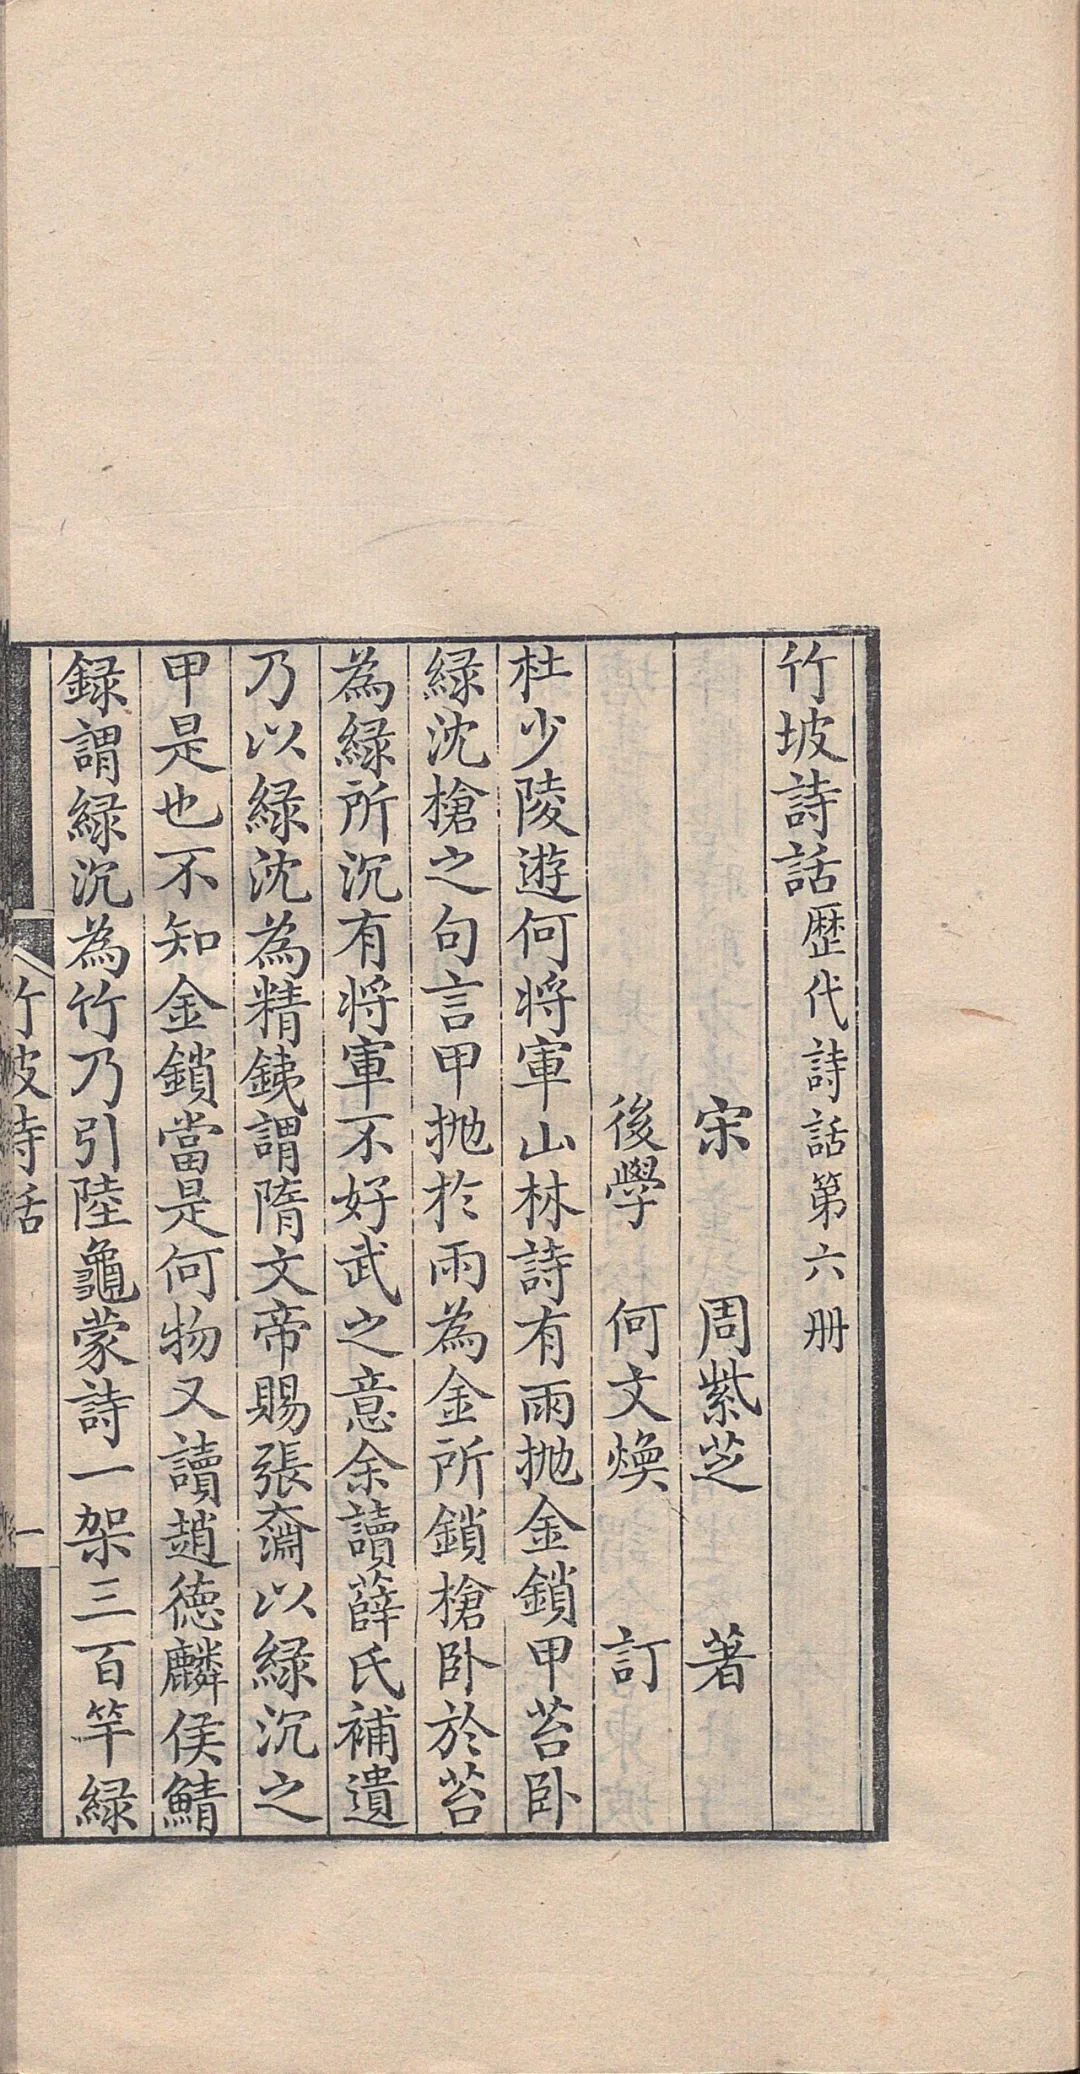 竹坡詩話歷代詩話第六册
宋 周紫芝 著
後學 何文煥 訂
杜少陵遊何將軍山林詩有雨拋金鎖甲苔臥
綠沈槍之句言甲拋於雨為金所鎖槍臥於苔
為綠所沉有將軍不好武之意余讀薛氏補遺
乃以綠沈為精鐵謂隋文帝賜張奫以綠沉之
甲是也不知金鎖當是何物又讀趙德麟侯鯖
録謂綠沉為竹乃引陸龜蒙詩一架三百竿綠
竹坡詩話
一